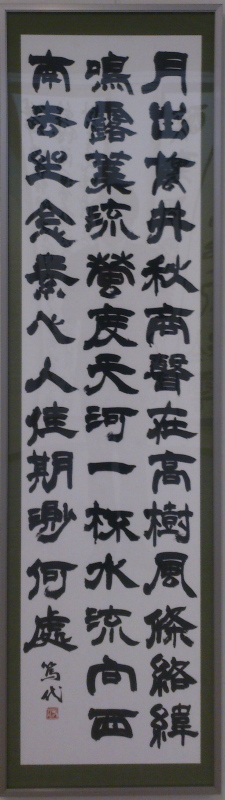 月出萬井秋商聲在高樹風條絡緯
鳴露葉流螢度天河一杯水流向西
南去坐念素心人佳期渺何處
篤代